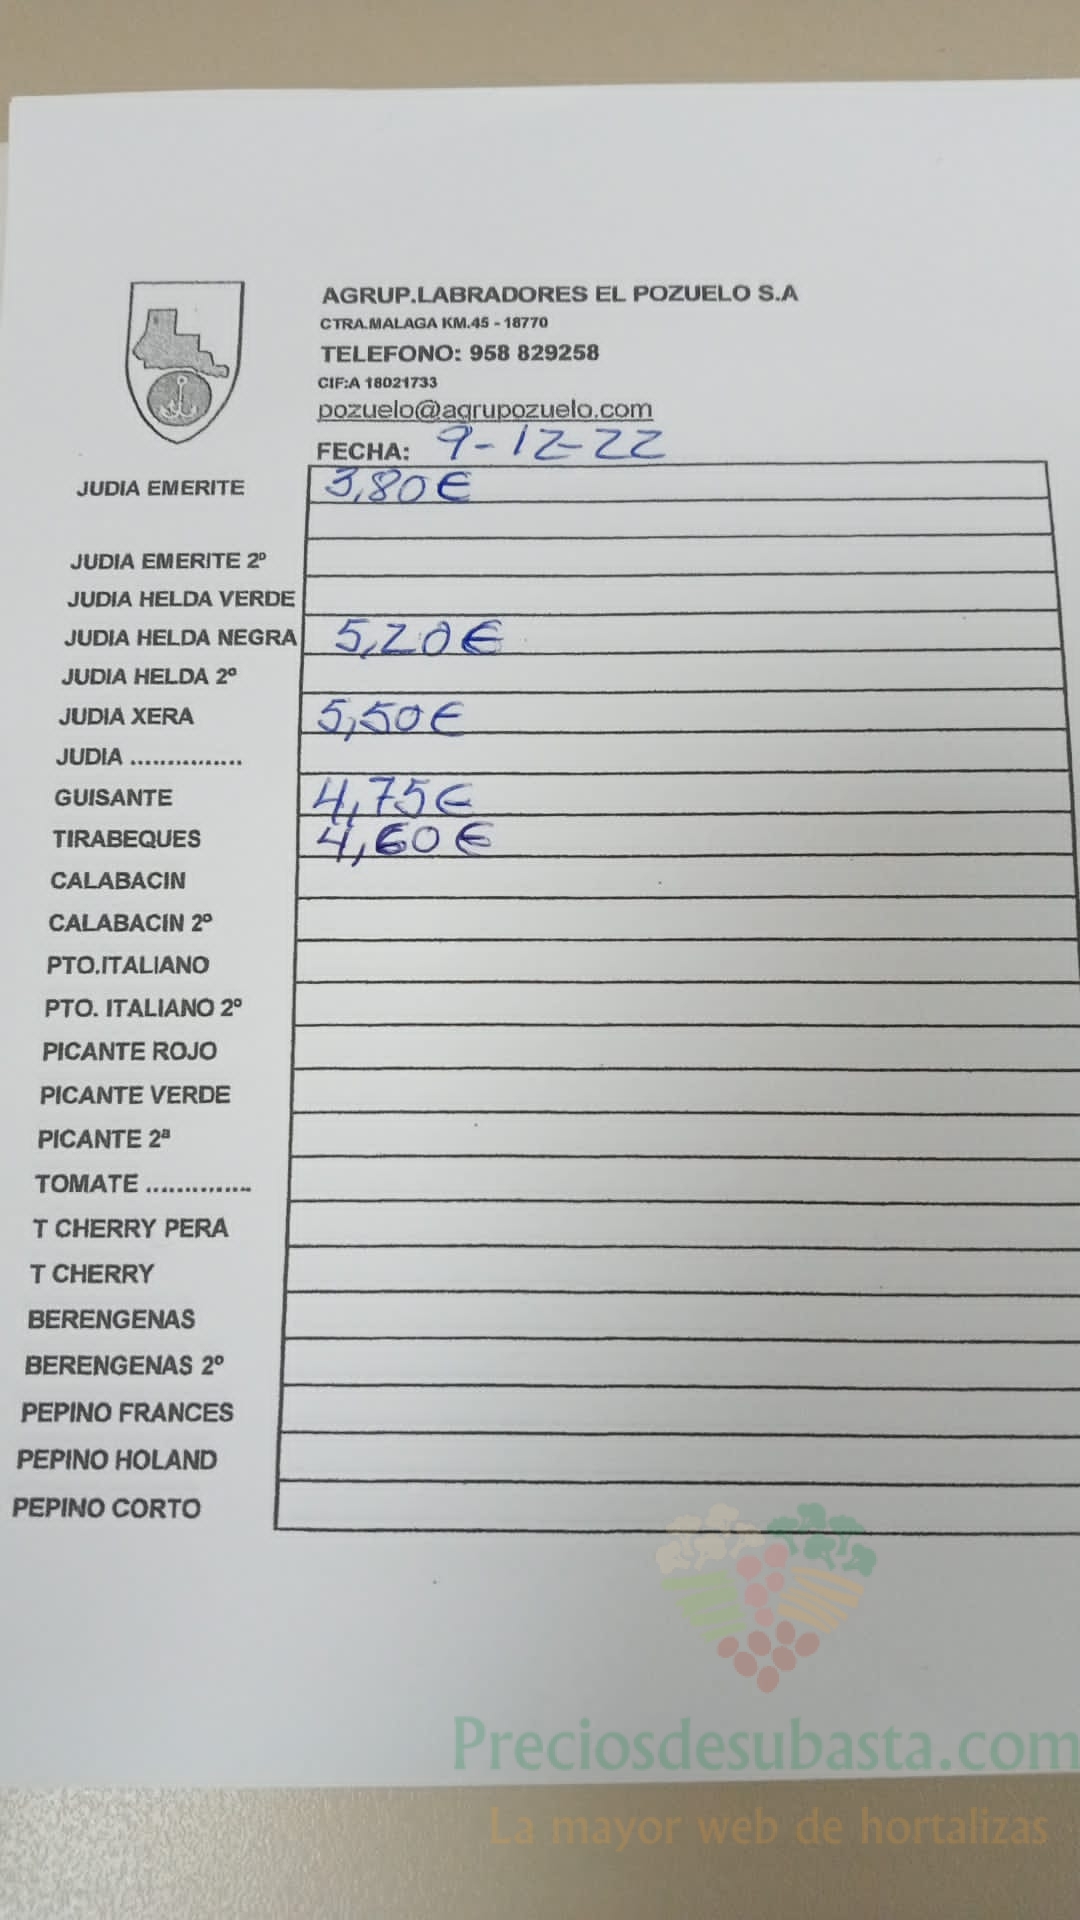 AGRUP.LABRADORES EL POZUELO S.A
CTRA.MALAGA KM.45 - 18770
TELEFONO: 958 829258
CIF:A 18021733
pozuelo@agrupozuelo.com
FECHA: 9-12-22
JUDIA EMERITE 3,80€
JUDIA EMERITE 2º
JUDIA HELDA VERDE
JUDIA HELDA NEGRA 5,20€
JUDIA HELDA 2º
JUDIA XERA 5,50€
JUDIA ...............
GUISANTE 4,75€
TIRABEQUES 4,60€
CALABACIN
CALABACIN 2º
PTO.ITALIANO
PTO. ITALIANO 2º
PICANTE ROJO
PICANTE VERDE
PICANTE 2ª
TOMATE ..............
T CHERRY PERA
T CHERRY
BERENGENAS
BERENGENAS 2º
PEPINO FRANCES
PEPINO HOLAND
PEPINO CORTO
Preciosdesubasta.com
La mayor web de hortalizas